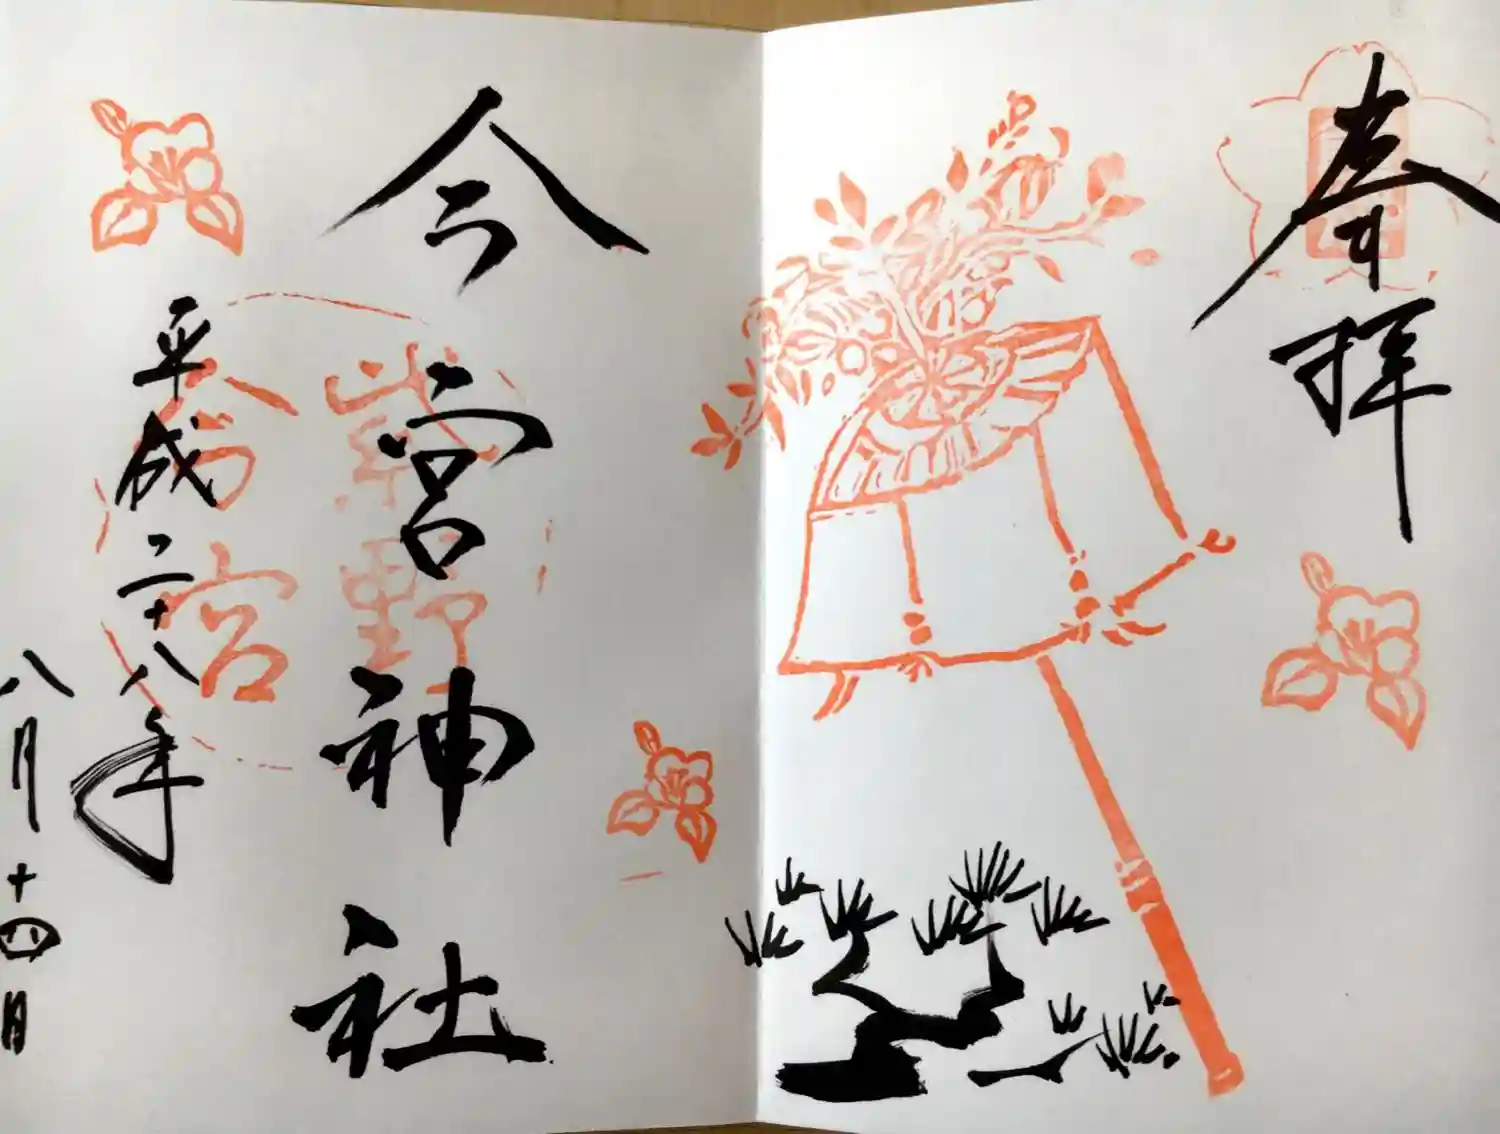 奉拝
今宮神社
紫野
今宮
平成二十八年
八月十四日